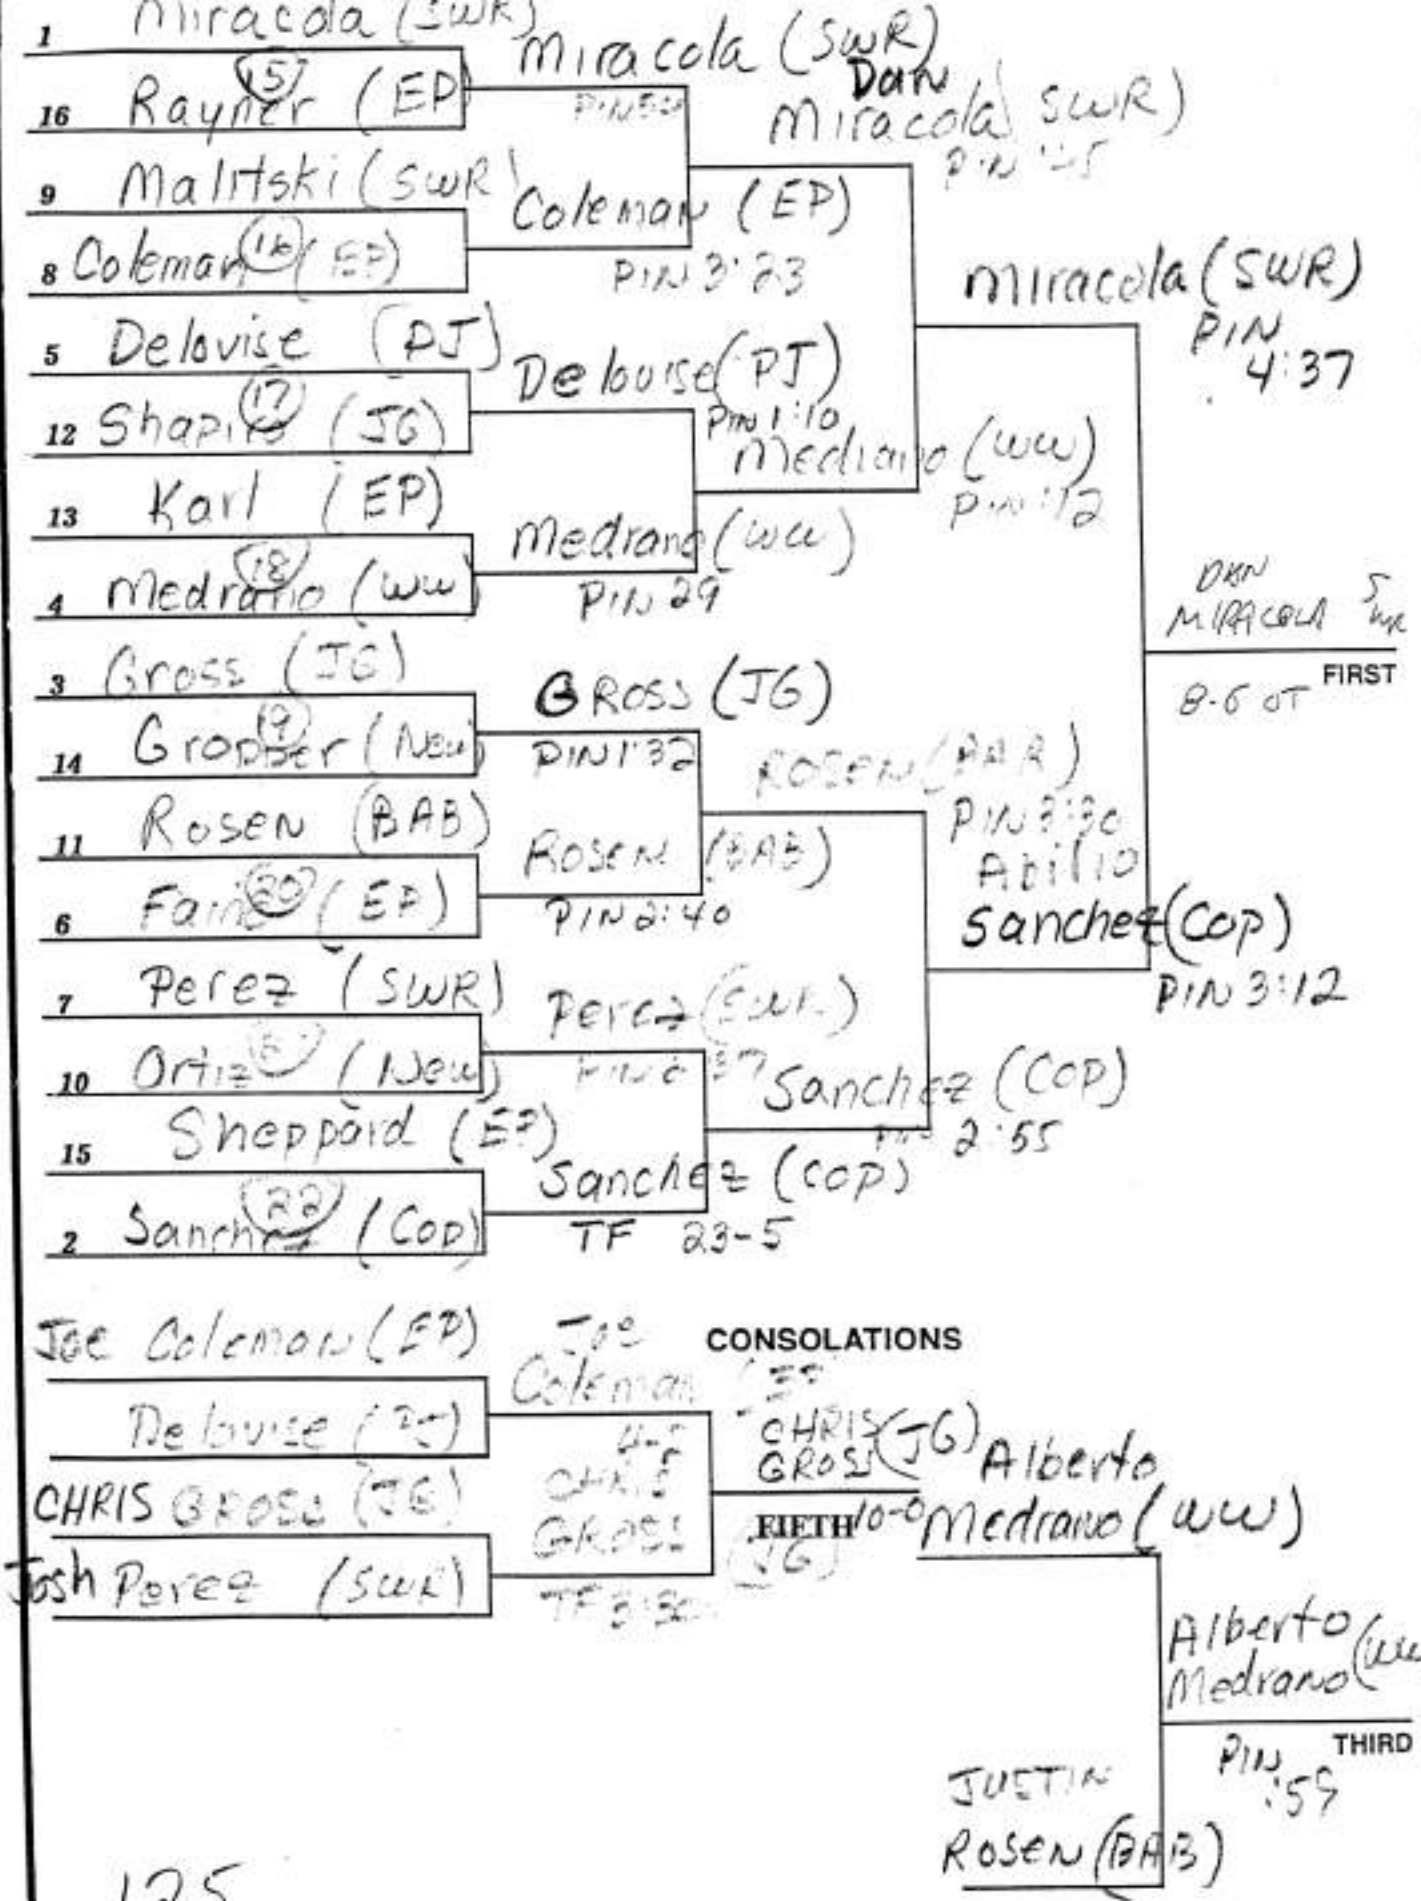 1 Miracola (SWR)
16 Rayner (EP)
15
9 Malitski (SWR)
8 Coleman (EP)
16
5 Delouise (PJ)
12 Shapiro (JG)
17
13 Karl (EP)
4 Medrano (WW)
18
3 Gross (JG)
14 Gropper (New)
19
11 Rosen (BAB)
6 (EP)
20
7 Perez (SWR)
10 Ortiz (New)
15 Sheppard (EP)
2 Sanchez (Cop)
22
Miracola (SWR)
PIN
Coleman (EP)
PIN 3:23
Delouise (PJ)
PIN 1:10
Medrano (WW)
PIN 29
GROSS (JG)
PIN 1:32
ROSEN (BAB)
PIN 2:40
Perez (SWR)
Sanchez (COP)
TF 23-5
Dan
Miracola SWR)
PIN :45
Medrano (WW)
PIN :12
ROSEN (BAB)
PIN 3:30
Sanchez (COP)
PIN 2:55
Miracola (SWR)
PIN
4:37
Abilio
Sanchez (COP)
PIN 3:12
DAN
MIRACOLA SWR
FIRST
8-6 OT
CONSOLATIONS
Joe Coleman (EP)
Delouise (PJ)
CHRIS GROSS (JG)
Josh Perez (SWR)
Joe
Coleman (EP)
CHRIS
GROSS (JG)
TF 3:30
CHRIS
GROSS (JG)
FIFTH 10-0
Alberto
Medrano (WW)
JUSTIN
ROSEN (BAB)
Alberto
Medrano (WW
THIRD
PIN
:59
125